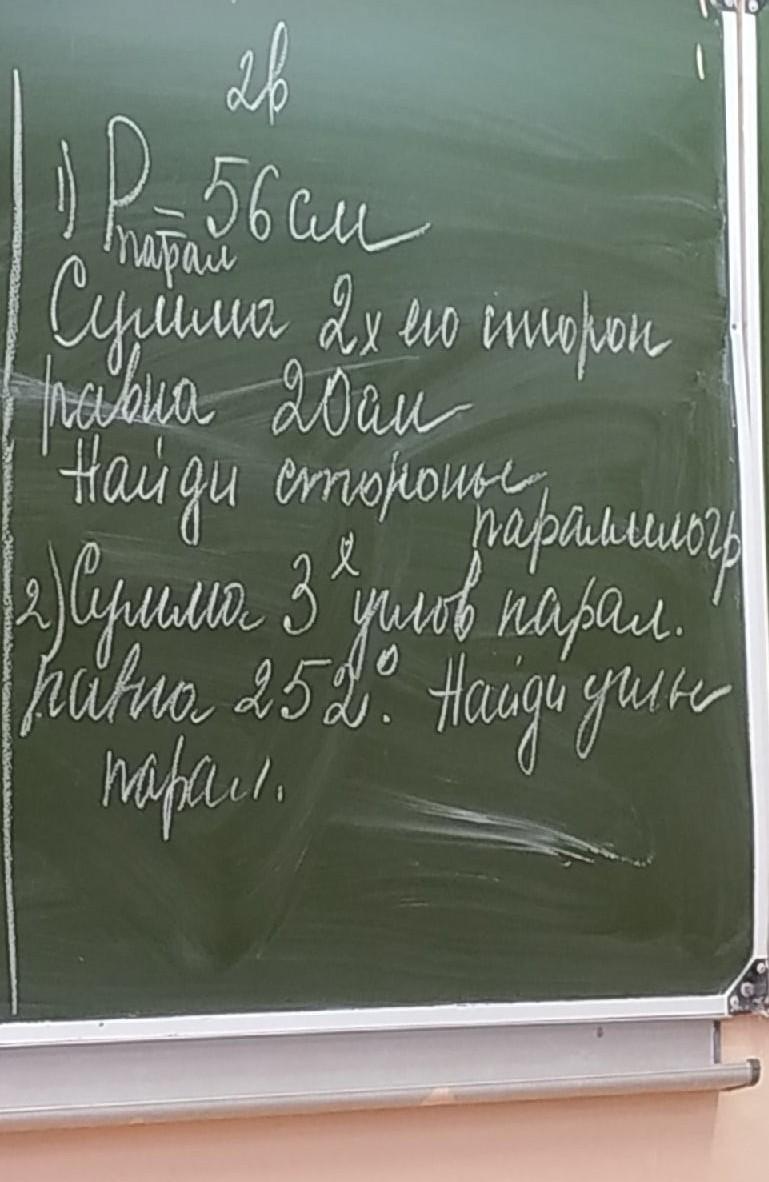 2в
1) Pпарал = 56 см
Сумма 2х его сторон
равна 20 см
Найди стороны
параллелогр
2) Сумма 3х углов парал.
равна 252°. Найди углы
парал.